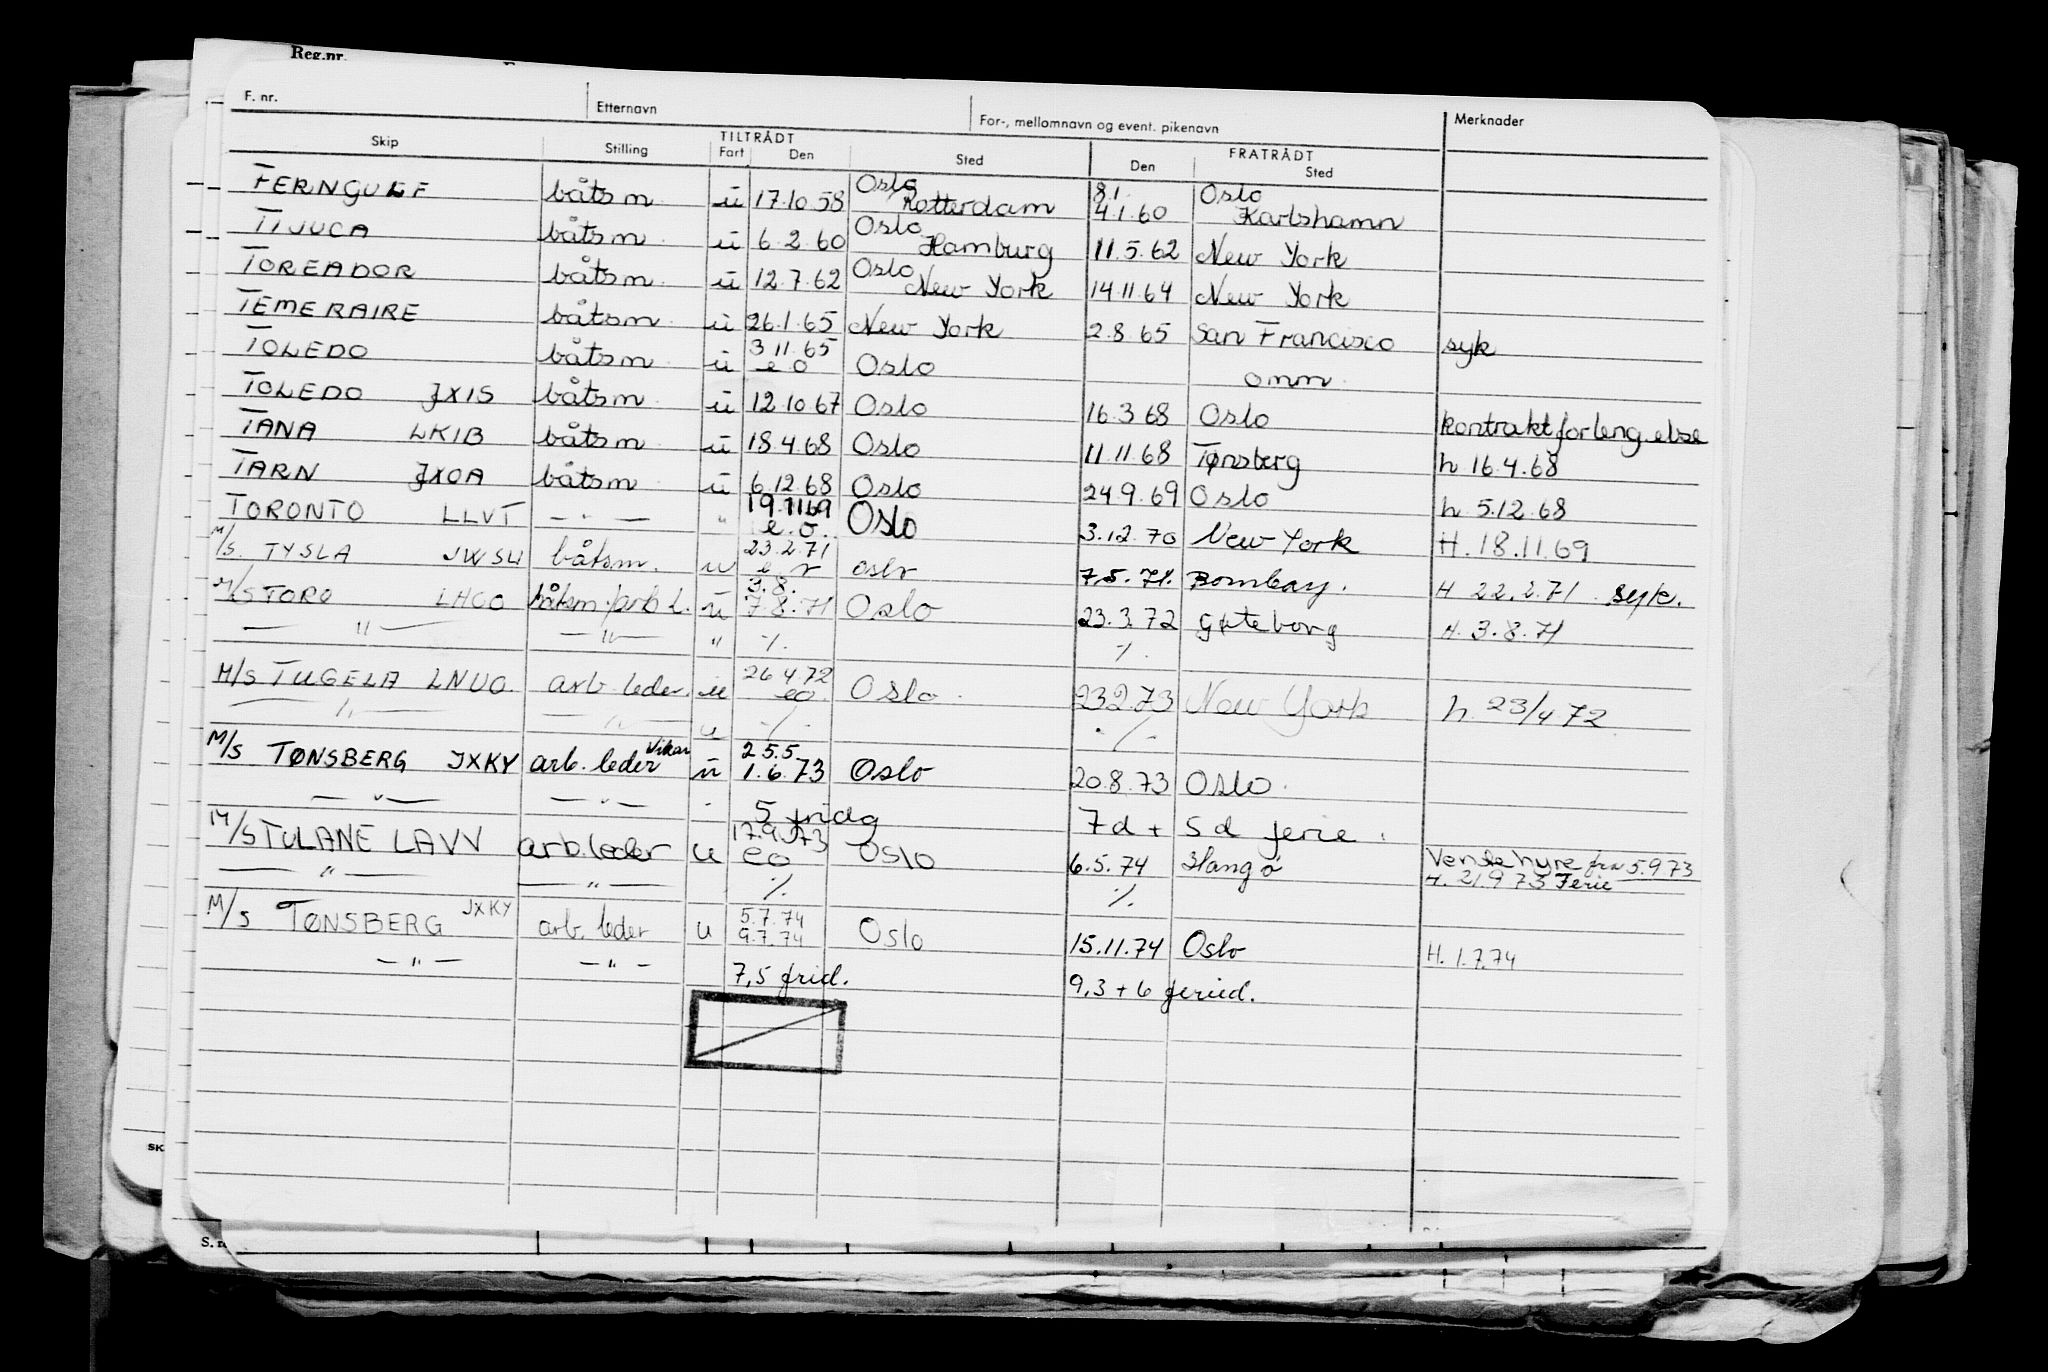 Reg.nr.
F. nr. Etternavn For-, mellomnavn og event. pikenavn Merknader
TILTRÅDT FRATRÅDT
Skip Stilling Fart Den Sted Den Sted
FERNGULF båtsm ü 17.10.58 Oslo Rotterdam 8.1. 4.1.60 Oslo Karlshamn
TIJUCA båtsm ü 6.2.60 Oslo Hamburg 11.5.62 New York
TOREADOR båtsm ü 12.7.62 Oslo New York 14.11.64 New York
TEMERAIRE båtsm ü 26.1.65 New York 2.8.65 San Francisco syk
TOLEDO båtsm ü 3.11.65 e o Oslo omm.
TOLEDO JXIS båtsm ü 12.10.67 Oslo 16.3.68 Oslo kontraktforlengelse
TANA LKIB båtsm ü 18.4.68 Oslo 11.11.68 Tønsberg h 16.4.68
TARN JXOA båtsm ü 6.12.68 Oslo 24.9.69 Oslo h 5.12.68
TORONTO LLVT — " — " 19.11.69 e.o. Oslo 3.12.70 New York H. 18.11.69
M/S. TYSLA JWSU båtsm. u 23.2.71 oslo 7.5.71. Bombay. H 22.2.71. syk.
M/S TORO LHCO båtsm./arb L. ü 3.8. 7.8.71 Oslo 23.3.72 Gøteborg H. 3.8.71
— " — — " — " ·/. ·/.
M/S TUGELA LNUO. arb. leder. ü 26.4.72 eo Oslo. 23.2.73 New York h. 23/4 72
— " — — " — u ·/. ·/.
M/S TØNSBERG JXKY arb. leder vikar ü 25.5 1.6.73 Oslo 20.8.73 Oslo.
— " — — " — " 5 fridg 7d + 5d ferie.
M/S TULANE LAVV arb.leder u 17.9.73 eo Oslo 6.5.74 Hangø Ventehyre fra 5.9 73
— " — — " — ·/. ·/. H. 21.9 73 Ferie
M/S TØNSBERG JXKY arb. leder u 5.7.74 9.7.74 Oslo 15.11.74 Oslo H. 1.7.74
— " — — " — 7,5 frid. 9,3 + 6 feried.
SK